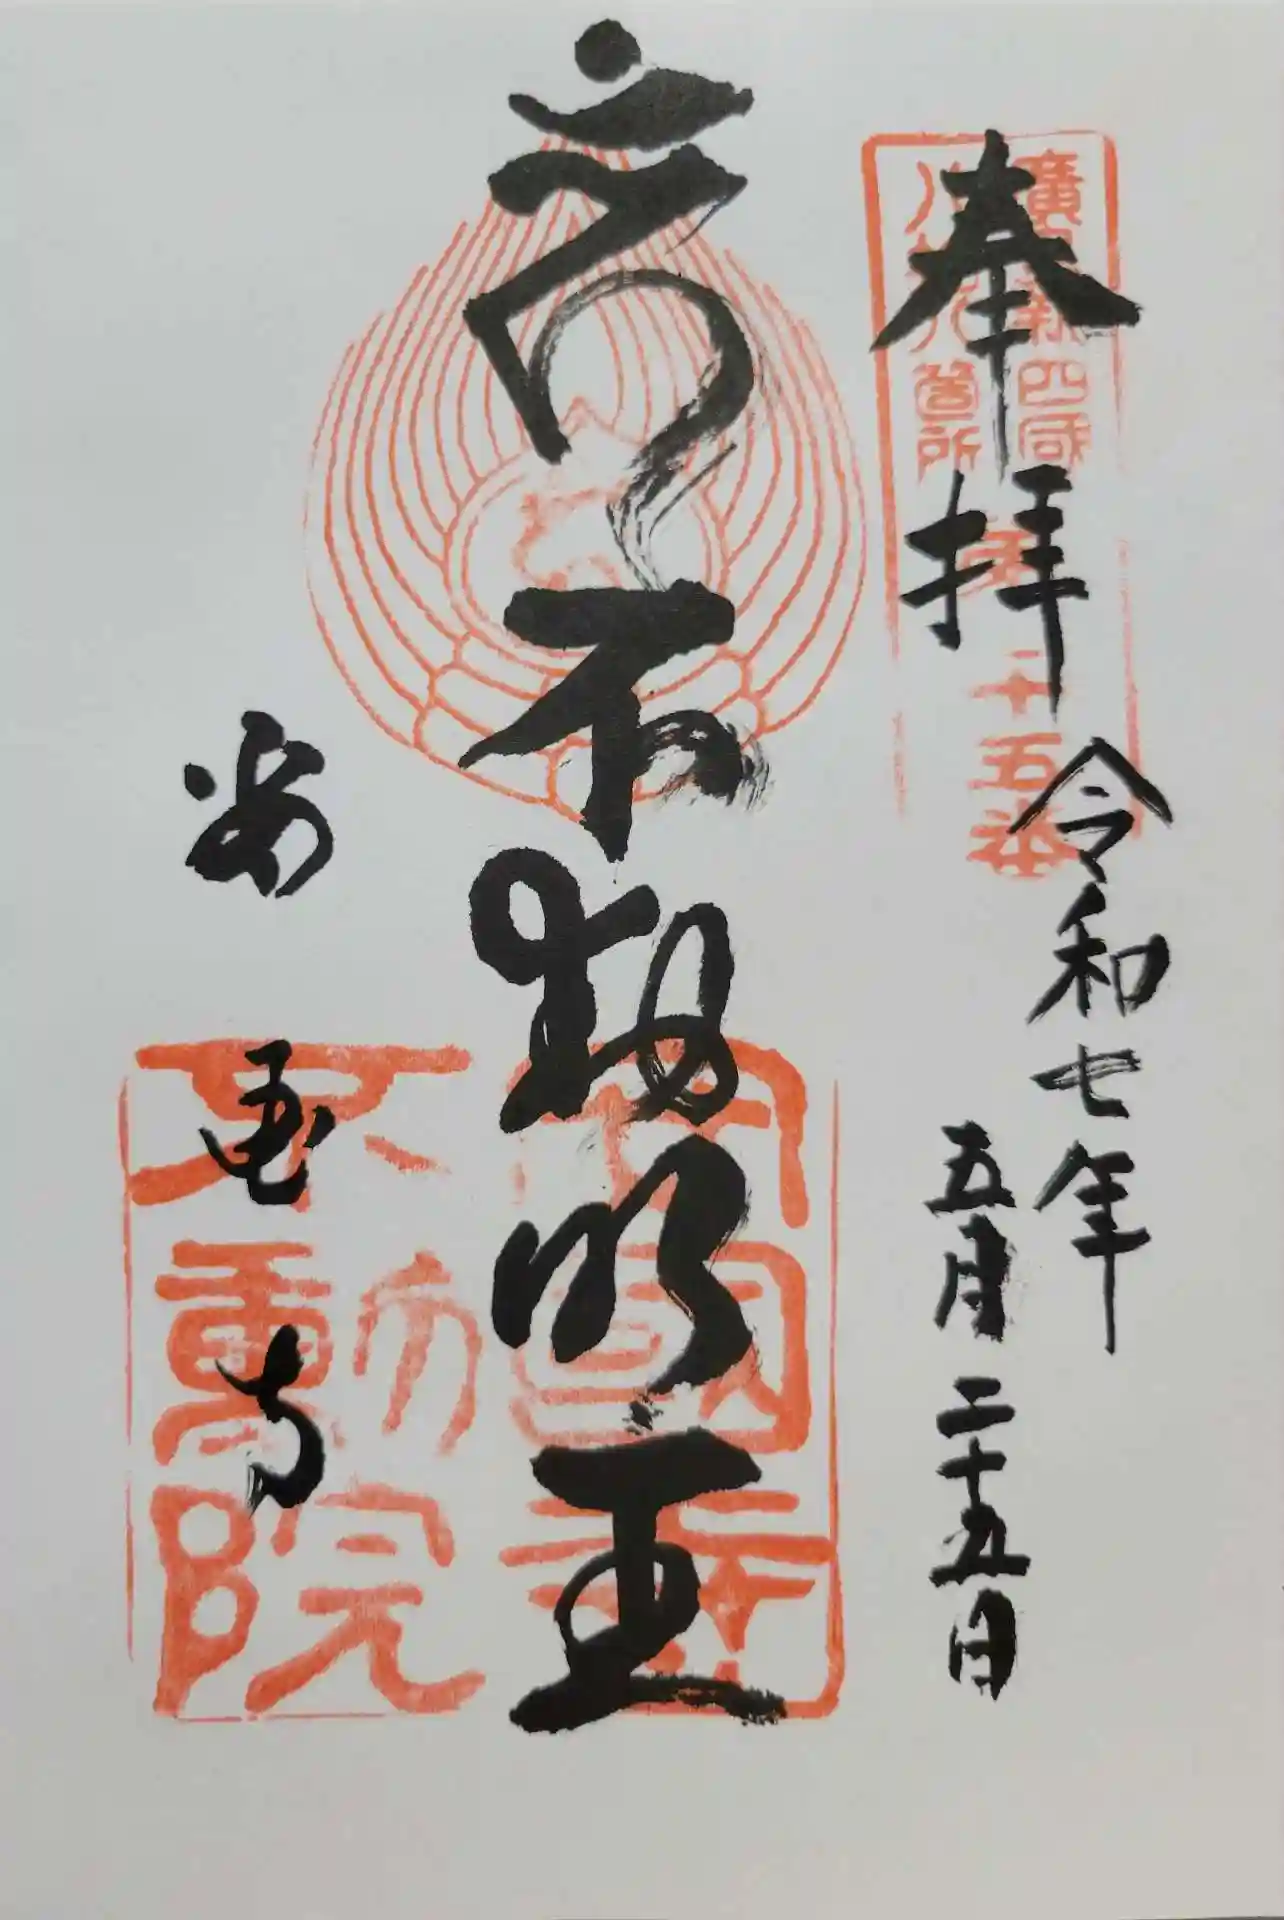 奉拝
令和七年
五月二十五日
不動明王
安国寺
廣島新四国
八十八箇所
第二十五番
安國寺
不動院